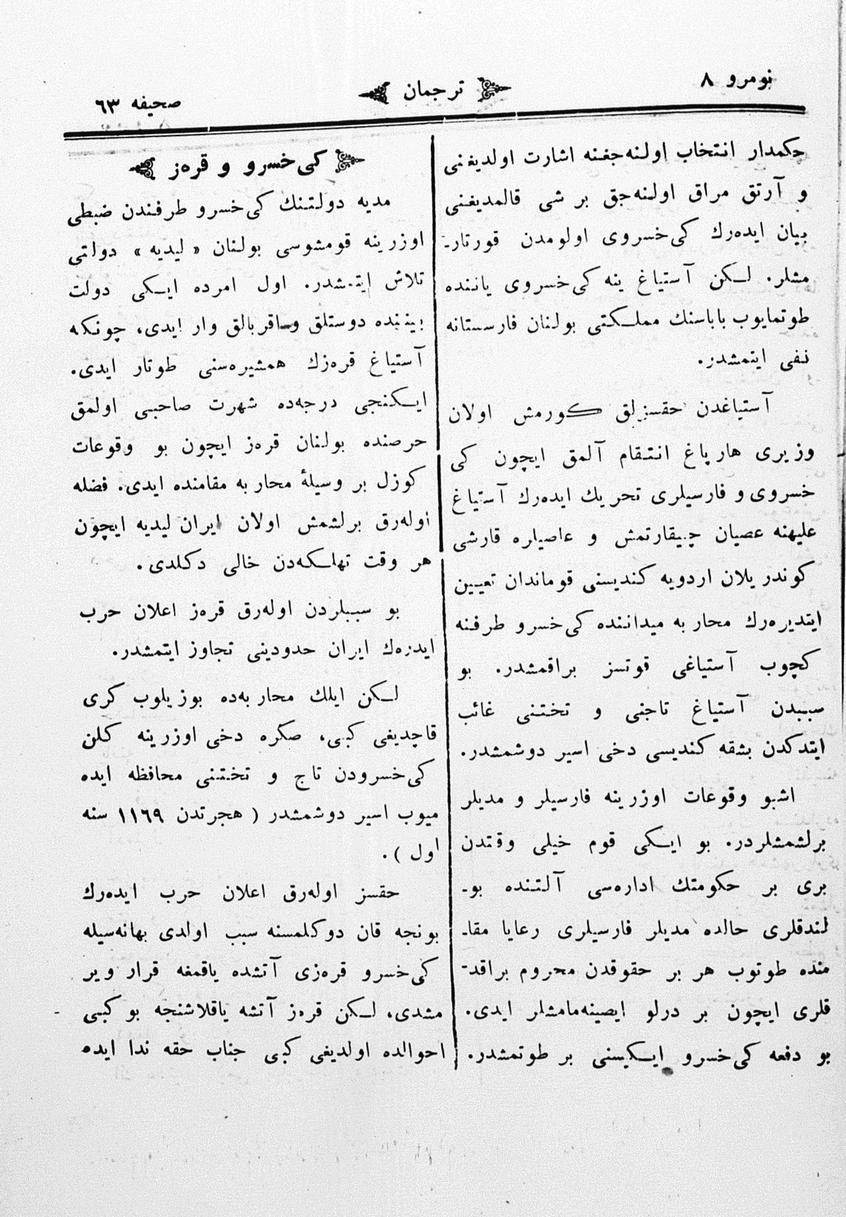 نومرو ٨
ترجمان
صحيفه ٦٣
حكمدار انتخاب اولنه‌جغنه اشارت اولديغنى
و آرتق مراق اولنه‌جق بر شى قالمديغنى
بيان ايده‌رك كى‌خسروى اولومدن قورتار-
مشلر. لكن آستياغ ينه كى‌خسروى ياننده
طوتمايوب باباسنك مملكتى بولنان فارسستانه
نفى ايتمشدر.
آستياغدن حقسزلق كورمش اولان
وزيرى هارپاغ انتقام آلمق ايچون كى
خسروى و فارسيلرى تحريك ايده‌رك آستياغ
عليهنه عصيان چيقارتمش و عاصيلره قارشى
كوندريلان اردويه كنديسنى قوماندان تعيين
ايتديره‌رك محاربه ميداننده كى‌خسرو طرفنه
كچوب آستياغى قوتسز براقمشدر. بو
سببدن آستياغ تاجنى و تختنى غائب
ايتدكدن بشقه كنديسى دخى اسير دوشمشدر.
اشبو وقوعات اوزرينه فارسيلر و مديلر
برلشمشلردر. بو ايكى قوم خيلى وقتدن
برى بر حكومتك اداره‌سى آلتنده بو-
لندقلرى حالده مديلر فارسيلرى رعايا مقا-
منده طوتوب هر بر حقوقدن محروم براقد-
قلرى ايچون بر درلو ايصينه‌مامشلر ايدى.
بو دفعه كى‌خسرو ايكيسنى بر طوتمشدر.
كى‌خسرو و قره‌ز
مديه دولتنك كى‌خسرو طرفندن ضبطى
اوزرينه قومشوسى بولنان « ليديه » دولتى
تلاش ايتمشدر. اول امرده ايكى دولت
بيننده دوستلق و اقربالق وار ايدى، چونكه
آستياغ قره‌زك همشيره‌سنى طوتار ايدى.
ايكنجى درجه‌ده شهرت صاحبى اولمق
حرصنده بولنان قره‌ز ايچون بو وقوعات
كوزل بر وسيلهٔ محاربه مقامنده ايدى. فضله
اوله‌رق برلشمش اولان ايران ليديه ايچون
هر وقت تهلكه‌دن خالى دكلدى.
بو سببلردن اوله‌رق قره‌ز اعلان حرب
ايده‌رك ايران حدودينى تجاوز ايتمشدر.
لكن ايلك محاربه‌ده بوزيلوب كرى
قاچديغى كبى، صكره دخى اوزرينه كلن
كى‌خسرودن تاج و تختنى محافظه ايده
ميوب اسير دوشمشدر ( هجرتدن ١١٦٩ سنه
اول ).
حقسز اوله‌رق اعلان حرب ايده‌رك
بونجه قان دوكلمسنه سبب اولدى بهانه‌سيله
كى‌خسرو قره‌زى آتشده ياقمغه قرار وير
مشدى، لكن قره‌ز آتشه ياقلاشنجه بو كبى
احوالده اولديغى كبى جناب حقه ندا ايده